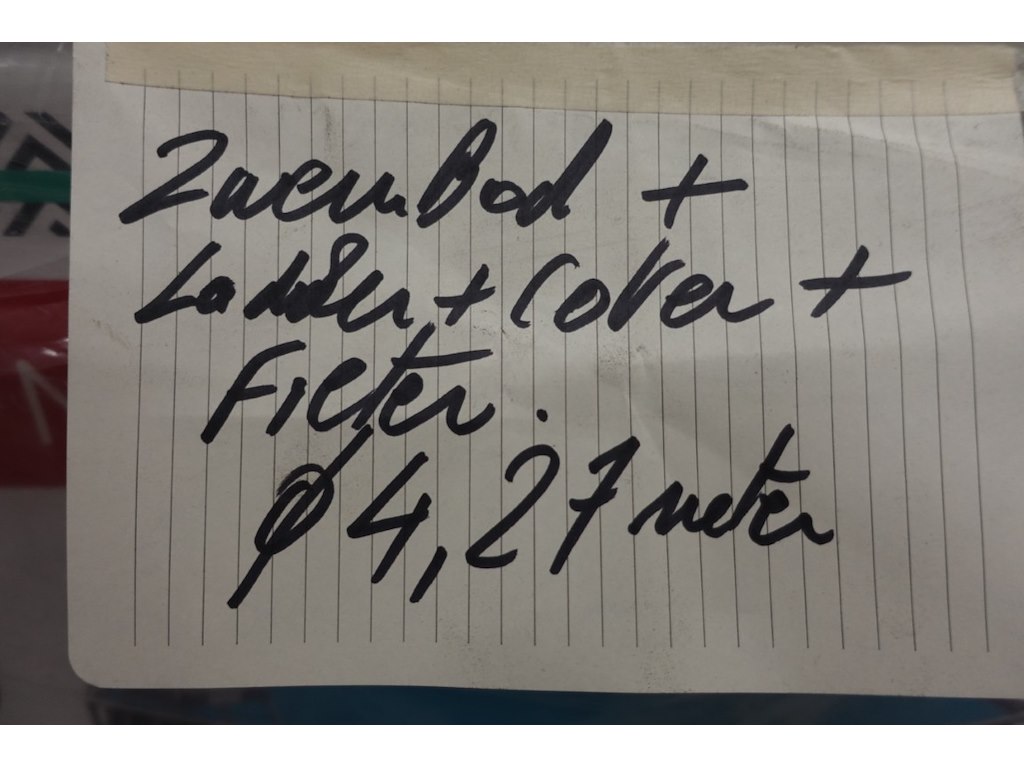 ZwemBad +
Ladder + Cover +
Filter.
Ø 4,27 meter